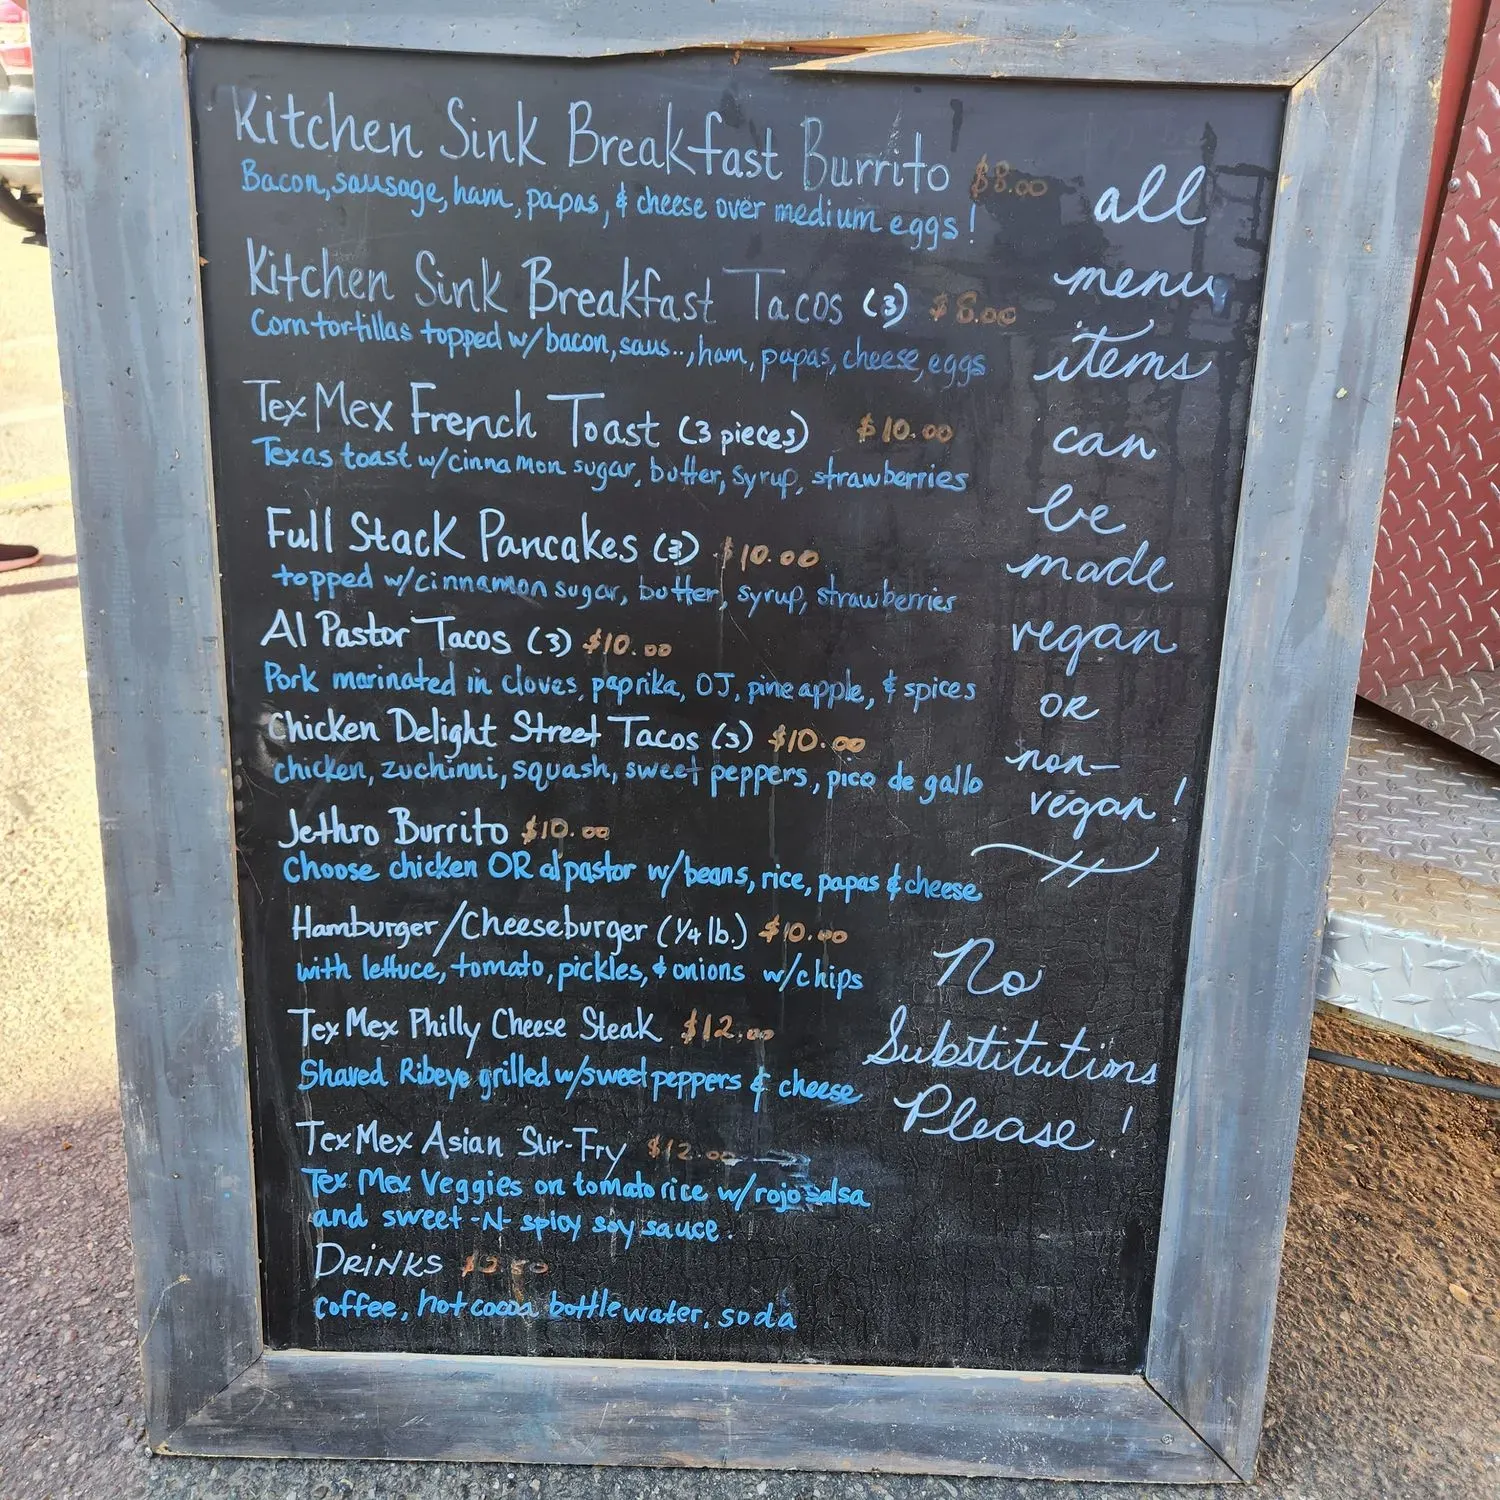 Kitchen Sink Breakfast Burrito $8.00
Bacon, sausage, ham, papas, & cheese over medium eggs!
Kitchen Sink Breakfast Tacos (3) $8.00
Corn tortillas topped w/bacon, saus.., ham, papas, cheese, eggs
Tex Mex French Toast (3 pieces) $10.00
Texas toast w/cinnamon sugar, butter, syrup, strawberries
Full Stack Pancakes (3) $10.00
topped w/cinnamon sugar, butter, syrup, strawberries
Al Pastor Tacos (3) $10.00
Pork marinated in cloves, paprika, OJ, pineapple, & spices
Chicken Delight Street Tacos (3) $10.00
chicken, zuchinni, squash, sweet peppers, pico de gallo
Jethro Burrito $10.00
Choose chicken OR al pastor w/beans, rice, papas & cheese
Hamburger/Cheeseburger (1/4 lb.) $10.00
with lettuce, tomato, pickles, & onions w/chips
Tex Mex Philly Cheese Steak $12.00
Shaved Ribeye grilled w/sweet peppers & cheese
Tex Mex Asian Stir-Fry $12.00
Tex Mex Veggies on tomato rice w/rojo salsa
and sweet-N-spicy soy sauce.
DRINKS $2.50
coffee, hot cocoa, bottle water, soda
all
menu
items
can
be
made
vegan
OR
non-
vegan!
No
Substitutions
Please!